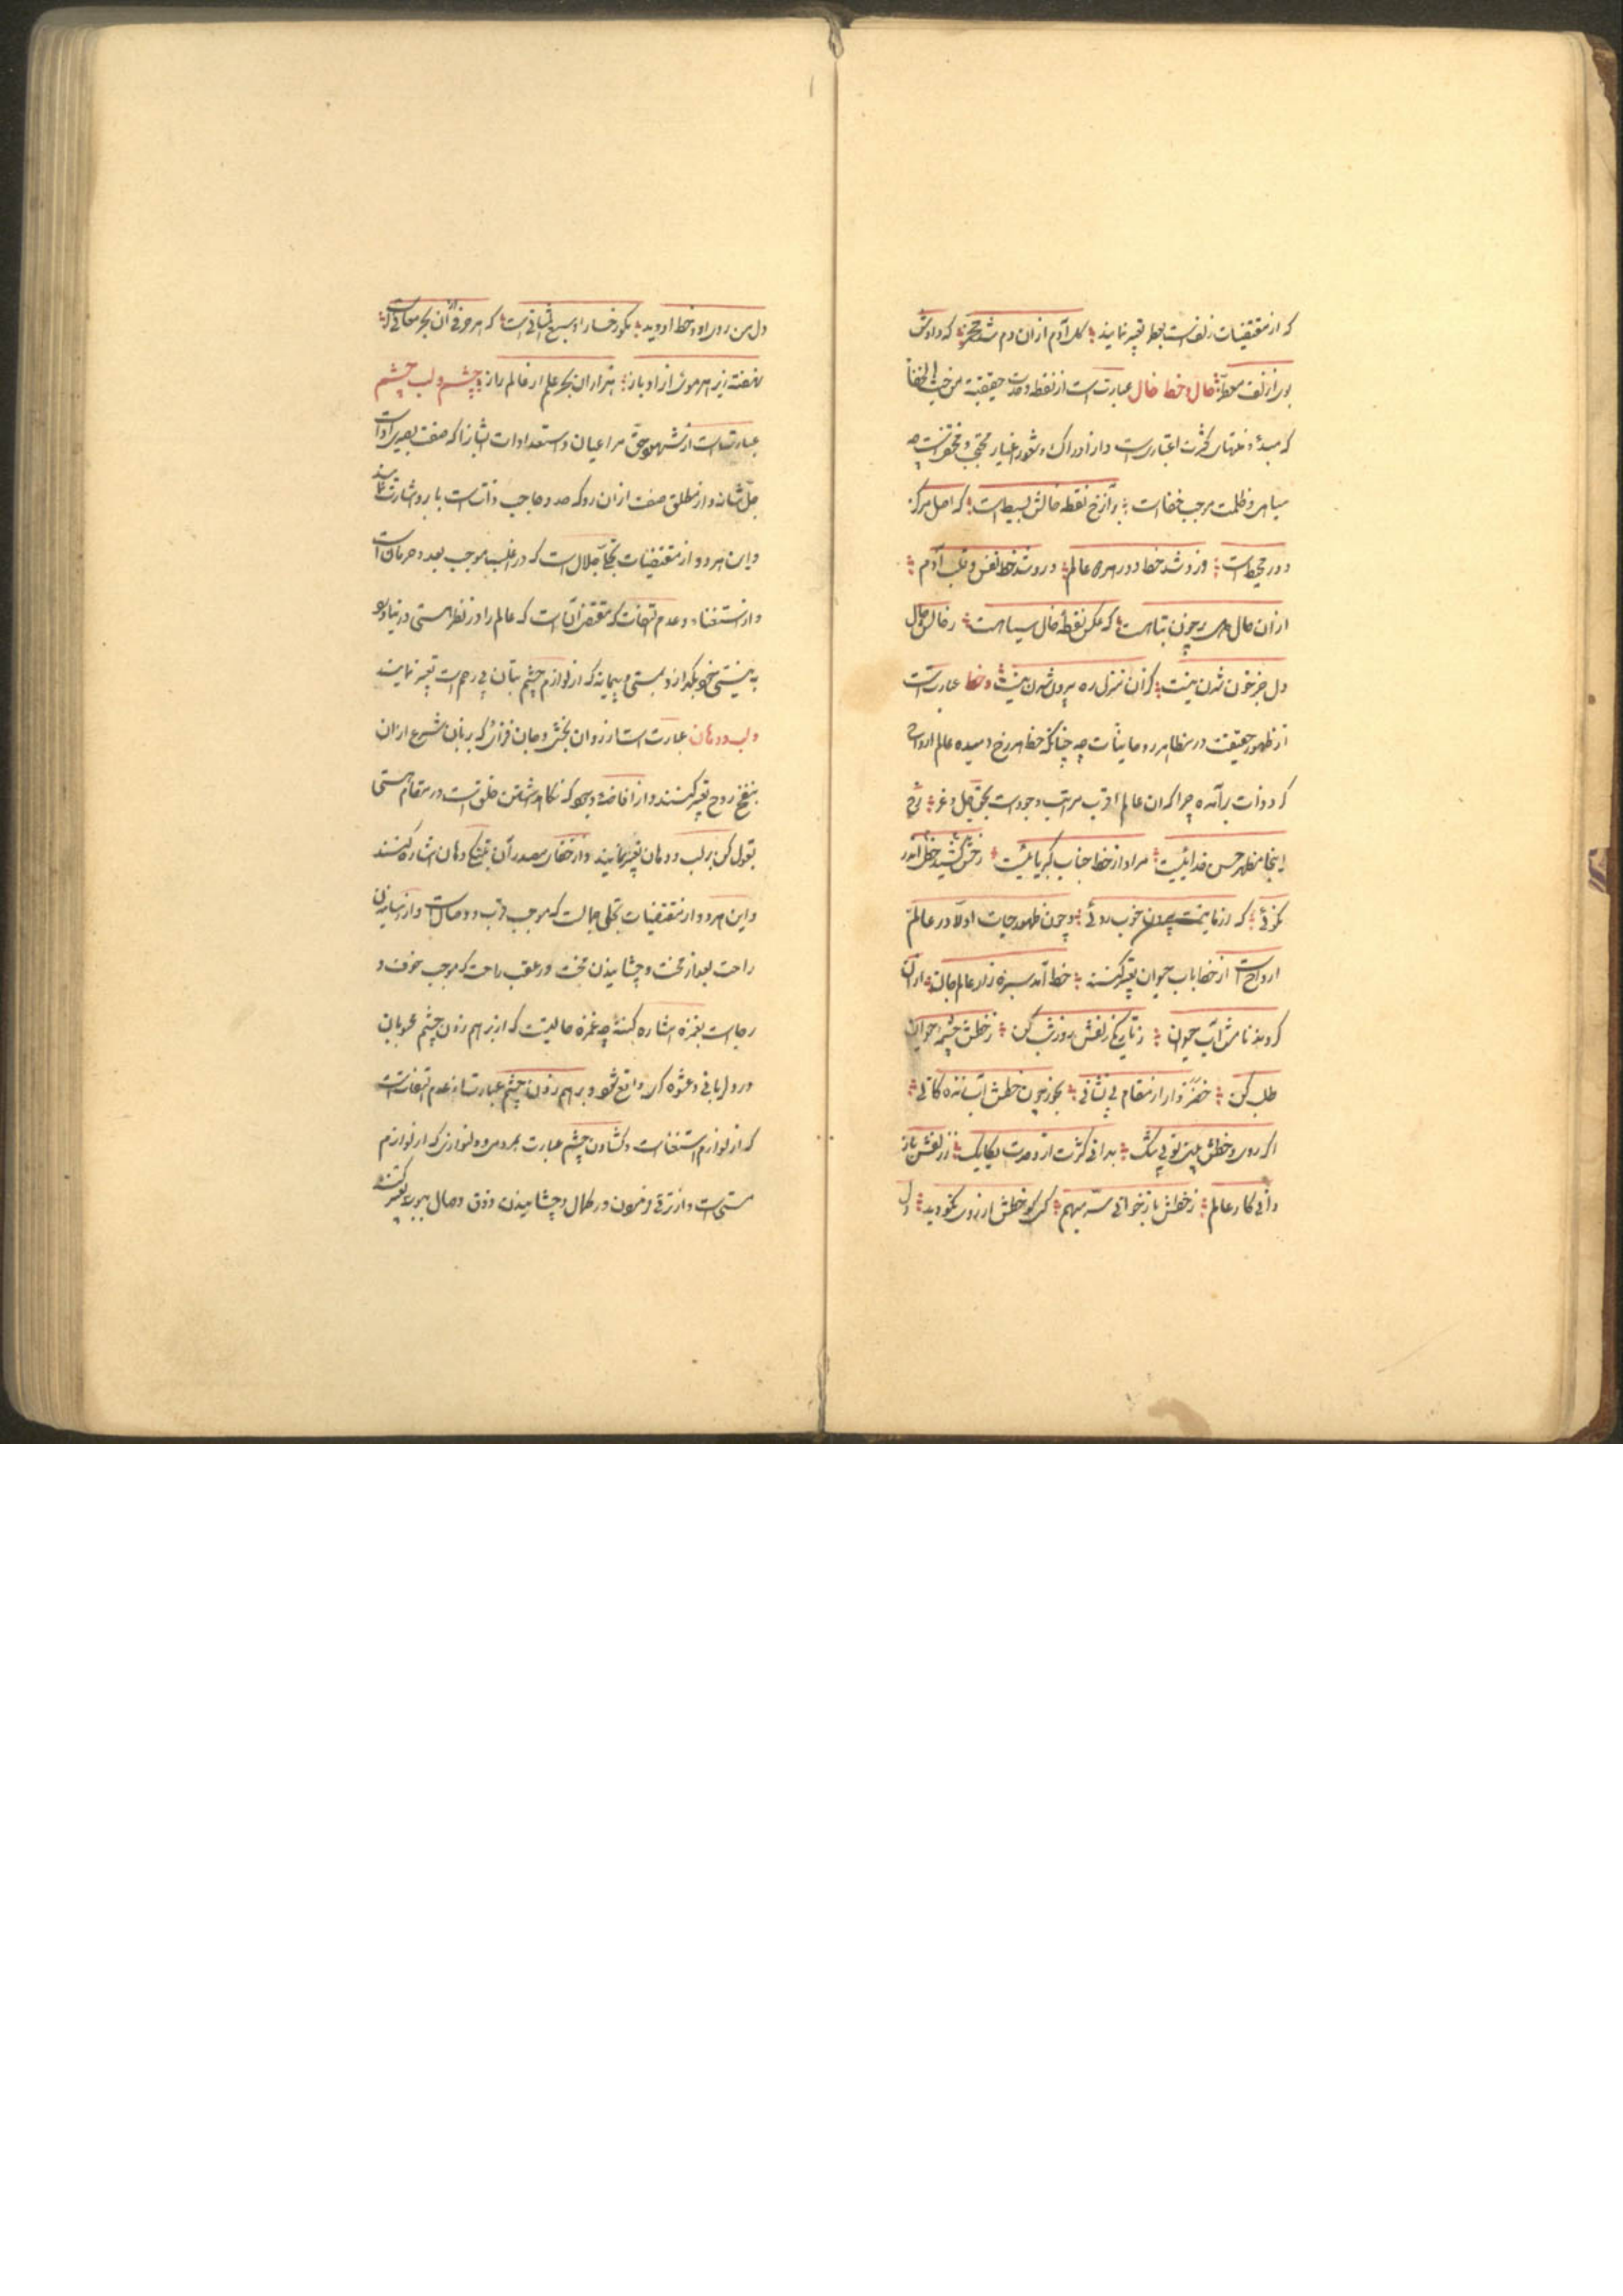 که از مقتضیات زلفست بعطر تعبیر نمایند گل آدم از آن دم شد مخمر که دادش
بوی از زلف معطر خال و خط خال عبارتست از نقطه وحدت حقیقیه من حیث الخفا
که مبدء و منتهای کثرت اعتباریست و از ادراک و شعور اغیار محتجب و مختفیست چه
سیاهی و ظلمت موجب خفاست بر آن رخ نقطه خالش بسیط است که اصل مرکز
دور محیط است وزو شد خط دور هر دو عالم وزو شد خط نفس و قلب آدم
از آن حال دل پر خون تباهست که عکس نقطه خال سیاهست ز خالش حال
دل جز خون شدن نیست کز آن منزل ره بیرون شدن نیست و خط عبارتست
از ظهور حقیقت در مظاهر روحانیات چه چنانکه خط بر رخ دمیده عالم ارواح
گرد ذات برآمده چرا که آن عالم اقرب مراتب وجودست بحق جل و عز رخ
اینجا مظهر حسن خدائیست مراد از خط جناب کبریائیست رخش خطی کشید اندر
نکوئی که از ما نیست بیرون خوب روئی و چون ظهور حیات اولا در عالم
ارواح است از خط بآب حیوان تعبیر کنند خط آمد سبزه زار عالم جان از آن
کردند نامش آب حیوان ز تاریکی زلفش روز شب کن ز خطش چشمه حیوان
طلب کن خضروار از مقام بی نشانی بخور چون خطش آب زندگانی
اگر روی و خطش بینی تو بی شک بدانی کثرت از وحدت یکایک ز زلفش باز
دانی کار عالم ز خطش باز خوانی سر مبهم کسی کو خطش از روی نکو دید
دل من روی او در خط او دید مگر رخسار او سبع المثانی است که هر حرفی از آن بحر معانی است
نهفته زیر هر موئی از او باز هزاران بحر علم از عالم راز چشم و لب چشم
عبارتست از شهود حق مر اعیان و استعدادات ایشانرا که صفت بصیری آنست
جل شانه و از مطلق صفت از آن رو که حد و حاجب ذاتست بابرو اشارت نمایند
و این هر دو از مقتضیات تجلی جلال است که در اغلب موجب بعد و حرمان است
و از استغنا و عدم التفات که مقتضی آنست که عالم را در نظر هستی در نیاورد
به نیستی خود بگذارد بمستی و بیماریکه از لوازم چشم بتان بی رحم است تعبیر نمایند
و لب و دهان عبارتست از روان بخشی و جان فزائی که بزبان شرع از آن
بنفخ روح تعبیر کنند و از افاضه وجود که نگاه داشتن خلق است در مقام هستی
بقول کن بر لب و دهان تعبیر نمایند و از خفای مصدر آن بتنگی دهان اشاره کنند
و این هر دو از مقتضیات تجلی جمالست که موجب قرب و وصالست و از رسانیدن
راحت بعد از محنت و چشانیدن محنت در عقب راحت که موجب خوف و
رجاست بغمزه اشاره کنند چه غمزه حالیست که از بر هم زدن چشم محبوبان
در دل ربائی و عشوه گری واقع شود و بر هم زدن چشم عبارت از عدم التفات است
که از لوازم استغناست و گشادن چشم عبارت بمردمی و دلنوازی که از لوازم
مستی است و از ترقی و نمودن در کمال و چشانیدن ذوق وصال ببوسه تعبیر کنند